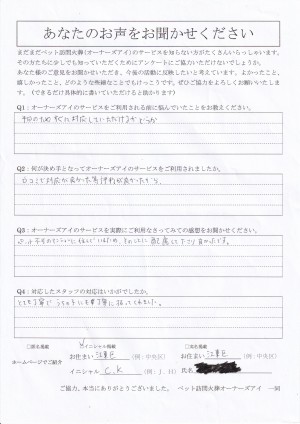 あなたのお声をお聞かせください
まだまだペット訪問火葬(オーナーズアイ)のサービスを知らない方がたくさんいらっしゃいます。
その方たちに少しでも知っていただくためにアンケートにご協力いただけないでしょうか。
あなた様のご意見をお聞かせいただき、今後の活動に反映したいと考えています。よかったこと、
嬉しかったこと、どのような些細なことでもけっこうです。ぜひご協力をよろしくお願いいたしま
す。(できるだけ具体的に書いていただけると助かります)
Q1:オーナーズアイのサービスをご利用される前に悩んでいたことをお教えください。
対応していただけるかどうか
Q2:何が決め手となってオーナーズアイのサービスをご利用されましたか。
口コミで対応が良かった
評判が良かったから。
Q3:オーナーズアイのサービスを実際にご利用なさってみての感想をお聞かせください。
Q4:対応したスタッフの対応はいかがでしたか。
とても丁寧で うちの子にも
□匿名掲載
イニシャル掲載
□実名掲載
ホームページでご紹介
お住まい 江東区 (例:中央区)
お住まい 江東区 (例:中央区)
イニシャル C.K (例:J.H)
氏名
ご協力、本当にありがとうございました。 ペット訪問火葬オーナーズアイ 一同